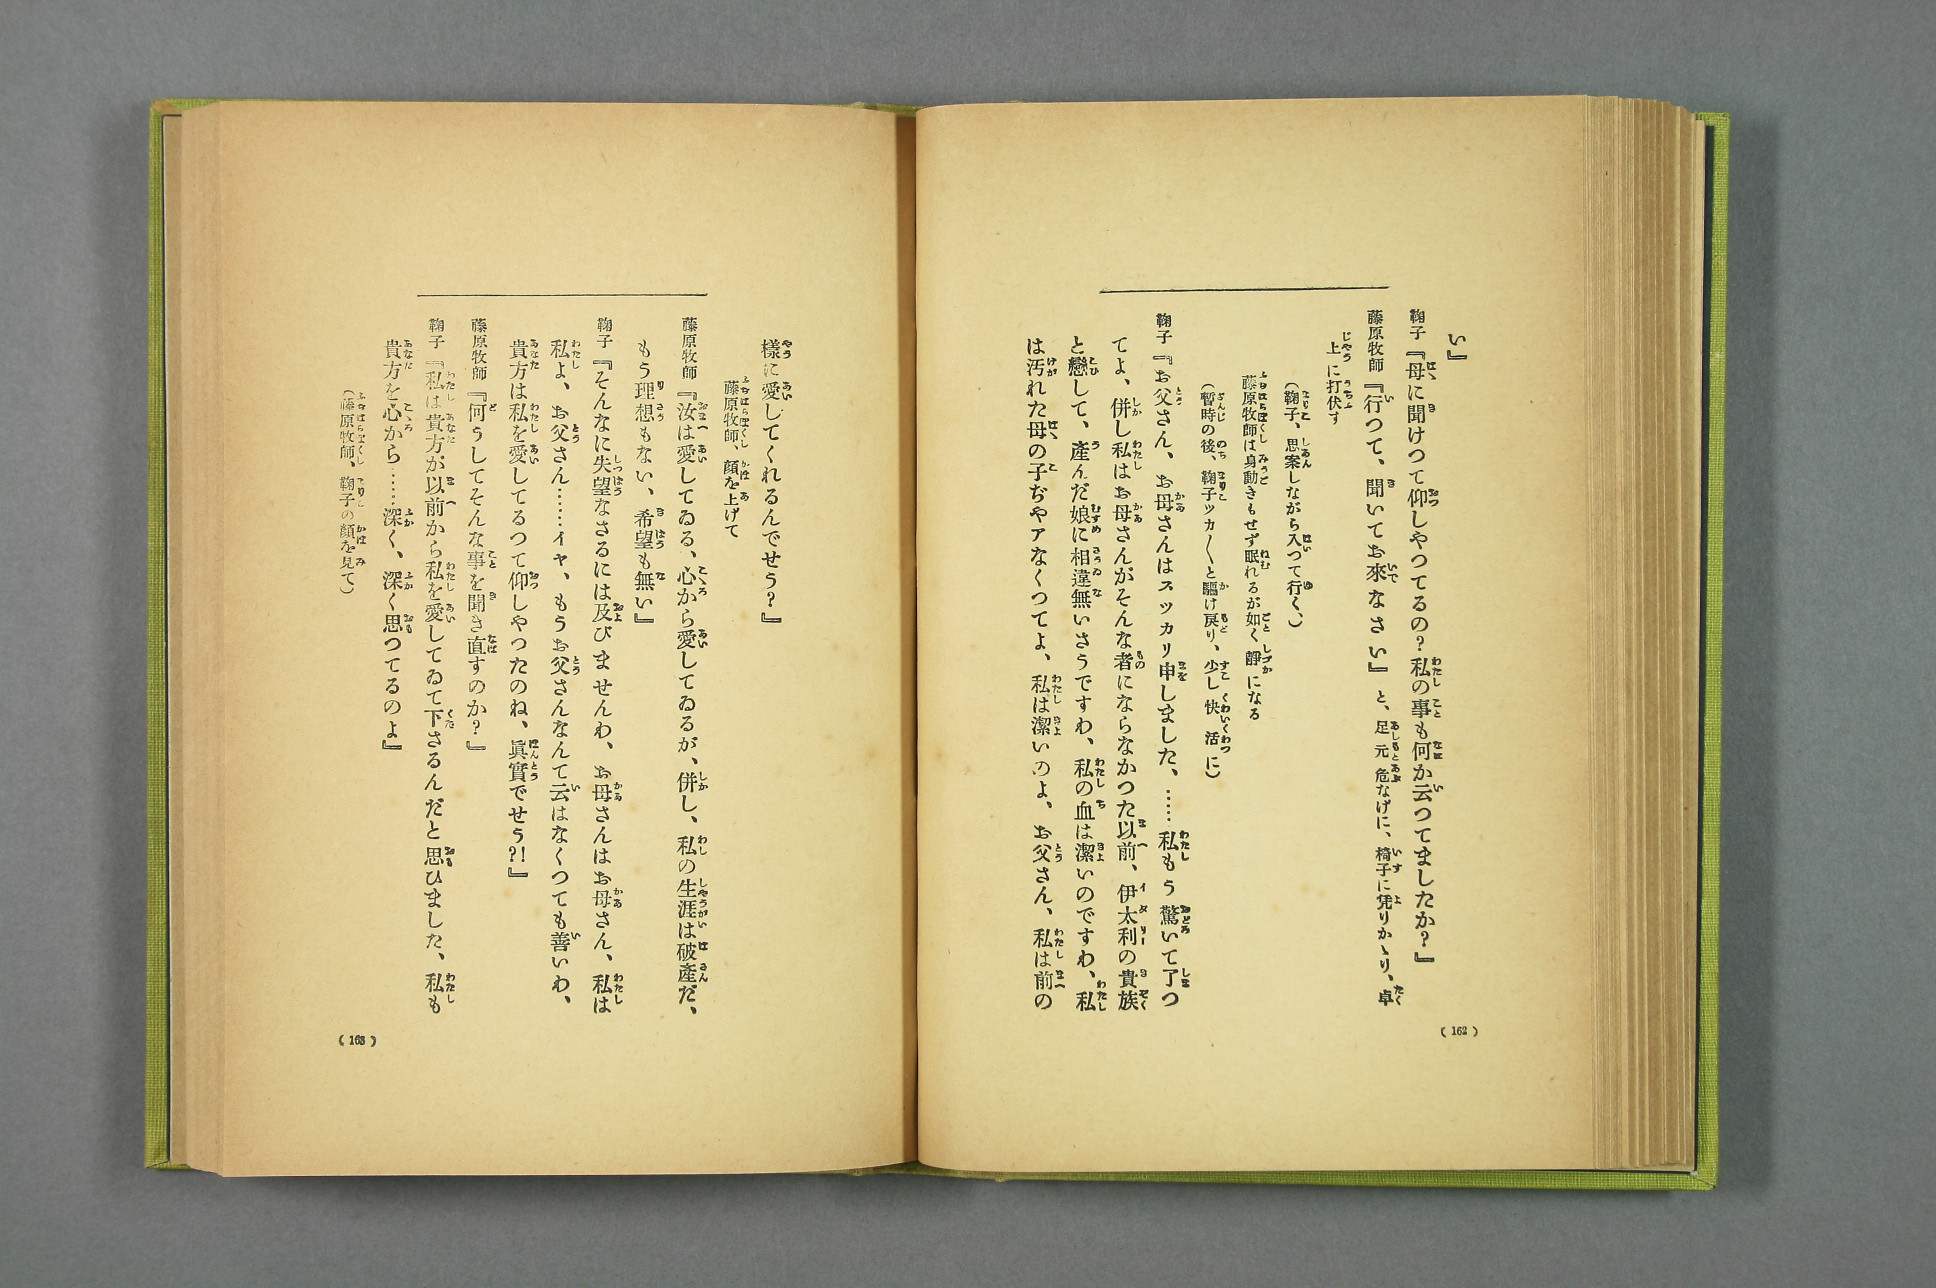 い』
鞠子『母に聞けつて仰しやつてるの？私の事も何か云つてましたか？』
藤原牧師『行つて、聞いてお來なさい』と、足元危なげに、椅子に凭りかゝり、卓
上に打伏す
（鞠子、思案しながら入つて行く、）
藤原牧師は身動きもせず眠れるが如く靜になる
（暫時の後、鞠子ツカ〱と驅け戻り、少し快活に）
鞠子『お父さん、お母さんはスツカリ申しました、……私もう驚いて了つ
てよ、併し私はお母さんがそんな者にならなかつた以前、伊太利の貴族
と戀して、產んだ娘に相違無いさうですわ、私の血は潔いのですわ、私
は汚れた母の子ぢやアなくつてよ、私は潔いのよ、お父さん、私は前の
（162）
樣に愛してくれるんでせう？』
藤原牧師、顏を上げて
藤原牧師『汝は愛してゐる、心から愛してゐるが、併し、私の生涯は破產だ、
もう理想もない、希望も無い』
鞠子『そんなに失望なさるには及びませんわ、お母さんはお母さん、私は
私よ、お父さん……イヤ、もうお父さんなんて云はなくつても善いわ、
貴方は私を愛してるつて仰しやつたのね、眞實でせう？！』
藤原牧師『何うしてそんな事を聞き直すのか？』
鞠子『私は貴方が以前から私を愛してゐて下さるんだと思ひました、私も
貴方を心から……深く、深く思つてるのよ』
（藤原牧師、鞠子の顏を見て）
（163）